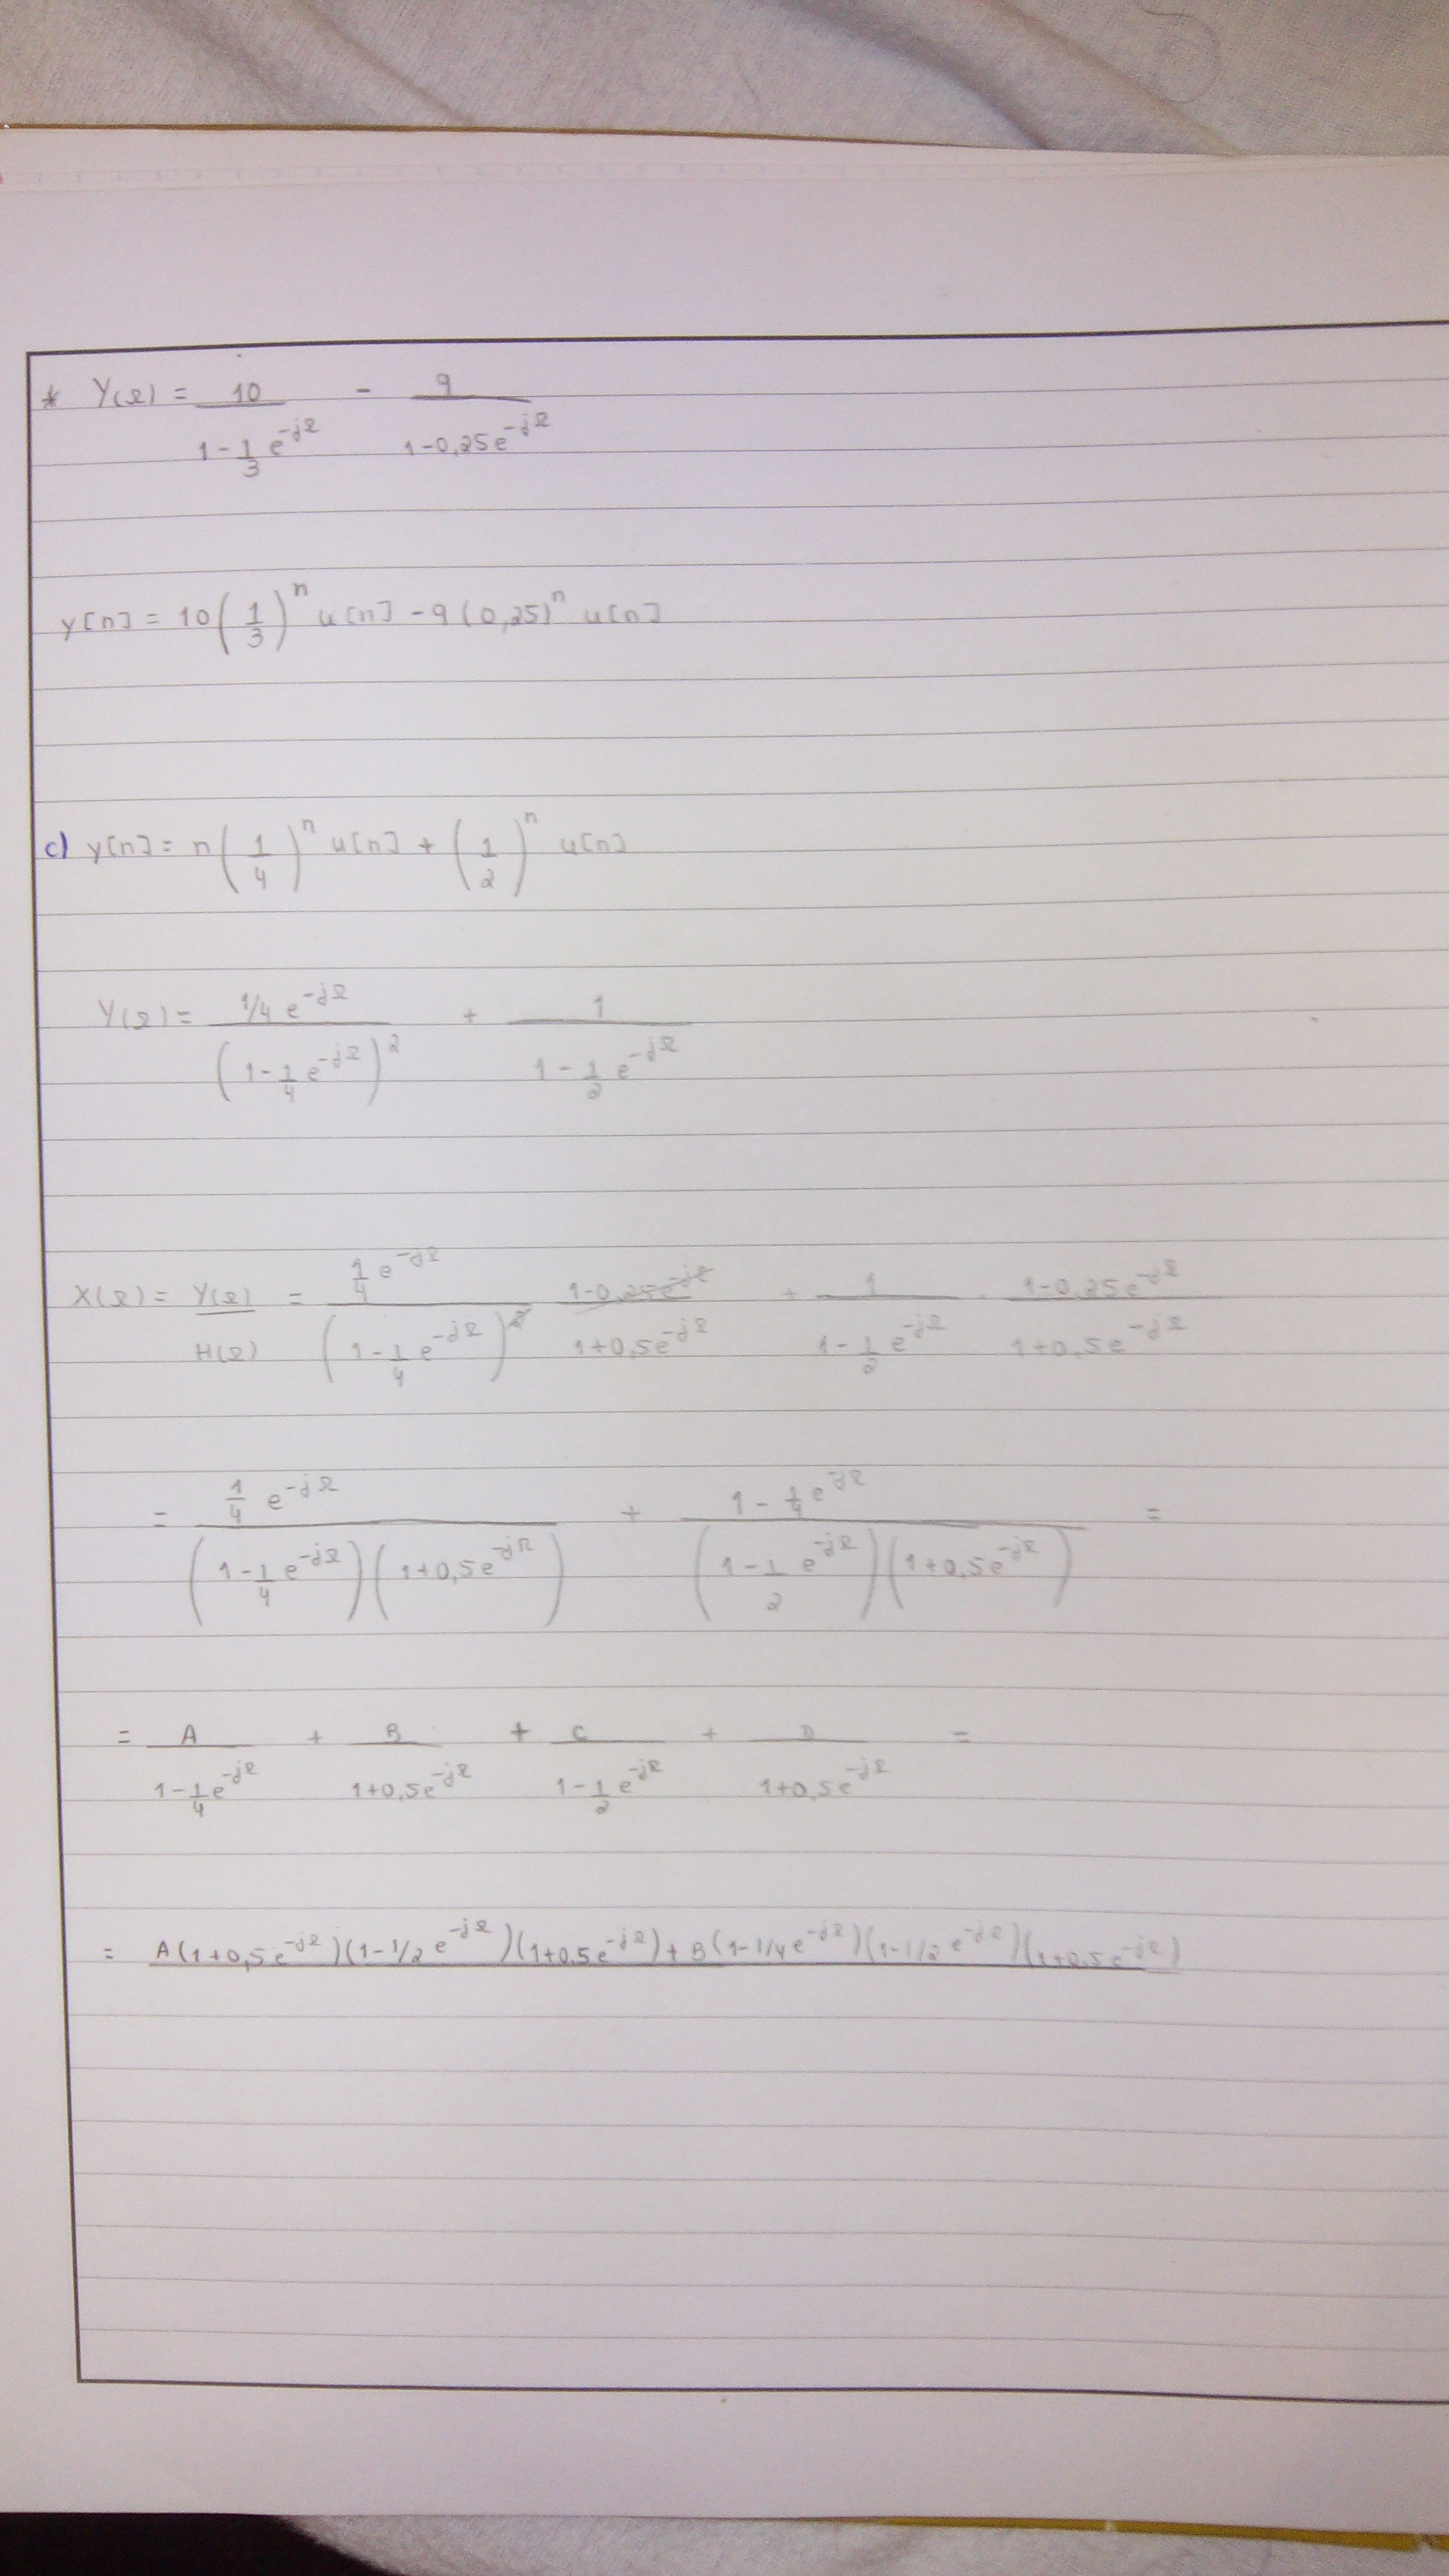 * Y(Ω) = 10/(1 - 1/3 e^-jΩ) - 9/(1-0,25e^-jΩ)
y[n] = 10(1/3)^n u[n] - 9(0,25)^n u[n]
c) y[n] = n(1/4)^n u[n] + (1/2)^n u[n]
Y(Ω) = (1/4 e^-jΩ)/(1 - 1/4 e^-jΩ)^2 + 1/(1 - 1/2 e^-jΩ)
X(Ω) = Y(Ω)/H(Ω) = (1/4 e^-jΩ)/(1 - 1/4 e^-jΩ)^2 (1-0,25e^-jΩ)/(1+0,5e^-jΩ) + 1/(1 - 1/2 e^-jΩ) · (1-0,25e^-jΩ)/(1+0,5e^-jΩ)
= (1/4 e^-jΩ)/((1 - 1/4 e^-jΩ)(1+0,5e^-jΩ)) + (1 - 1/4 e^-jΩ)/((1 - 1/2 e^-jΩ)(1+0,5e^-jΩ)) =
= A/(1 - 1/4 e^-jΩ) + B/(1+0,5e^-jΩ) + C/(1 - 1/2 e^-jΩ) + D/(1+0,5e^-jΩ) =
= A(1+0,5e^-jΩ)(1-1/2 e^-jΩ)(1+0,5e^-jΩ) + B(1-1/4e^-jΩ)(1-1/2 e^-jΩ)(1+0,5e^-jΩ)